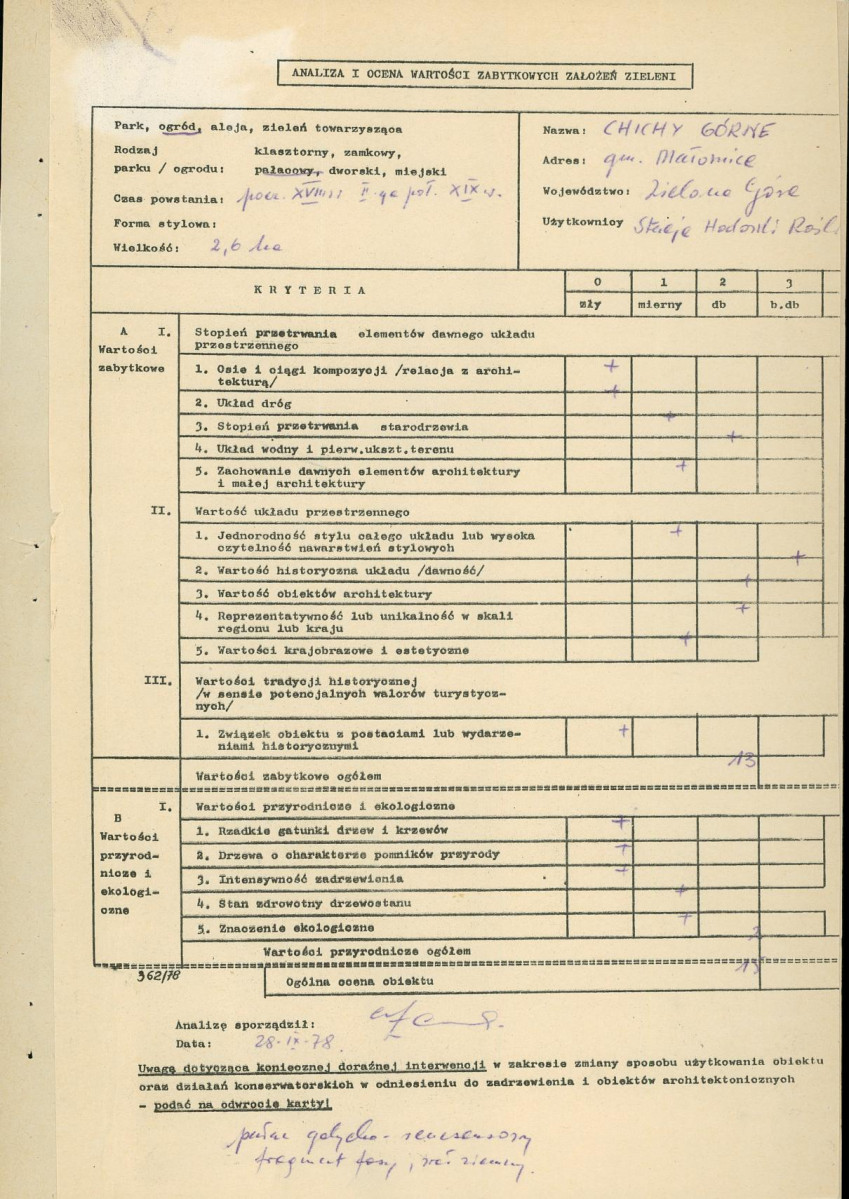 ANALIZA I OCENA WARTOŚCI ZABYTKOWYCH ZAŁOŻEŃ ZIELENI
Park, ogród, aleja, zieleń towarzysząca
Rodzaj klasztorny, zamkowy,
parku / ogrodu: pałacowy, dworski, miejski
Czas powstania: pocz. XVIII II-ga poł. XIX w.
Forma stylowa:
Wielkość: 2,6 ha
Nazwa: CHICHY GÓRNE
Adres: gm. Małomice
Województwo: Zielona Góra
Użytkownicy Stacja Hodowli Rośl
KRYTERIA
0 1 2 3
zły mierny db b.db
A I. Stopień przetrwania elementów dawnego układu
Wartości przestrzennego
zabytkowe 1. Osie i ciągi kompozycji /relacja z archi- +
tekturą/
2. Układ dróg +
3. Stopień przetrwania starodrzewia +
4. Układ wodny i pierw.ukszt.terenu +
5. Zachowanie dawnych elementów architektury +
i małej architektury
II. Wartość układu przestrzennego
1. Jednorodność stylu całego układu lub wysoka +
czytelność nawarstwień stylowych
2. Wartość historyczna układu /dawność/ +
3. Wartość obiektów architektury +
4. Reprezentatywność lub unikalność w skali +
regionu lub kraju
5. Wartości krajobrazowe i estetyczne +
III. Wartości tradycji historycznej
/w sensie potencjalnych walorów turystycz-
nych/
1. Związek obiektu z postaciami lub wydarze- +
niami historycznymi
Wartości zabytkowe ogółem 13
B I. Wartości przyrodnicze i ekologiczne
Wartości 1. Rzadkie gatunki drzew i krzewów +
przyrod- 2. Drzewa o charakterze pomników przyrody +
nicze i 3. Intensywność zadrzewienia +
ekologi- 4. Stan zdrowotny drzewostanu +
czne 5. Znaczenie ekologiczne +
Wartości przyrodnicze ogółem 2
362/78 Ogólna ocena obiektu 15
Analizę sporządził:
Data: 28-IX-78.
Uwagę dotycząca koniecznej doraźnej interwencji w zakresie zmiany sposobu użytkowania obiektu
oraz działań konserwatorskich w odniesieniu do zadrzewienia i obiektów architektonicznych
- podać na odwrocie karty!
pałac gotycko-renesansowy
fragment fosy, wał ziemny.